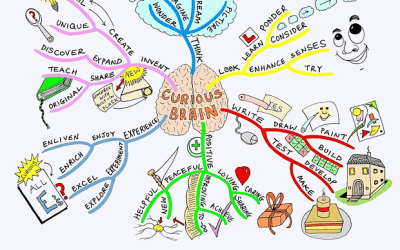 CURIOUS
BRAIN
THINK
DREAM
IMAGINE
WONDER
LOOK
LEARN
PONDER
CONSIDER
L
ENHANCE
SENSES
TRY
WRITE
YES
DRAW
PAINT
BUILD
TEST
DEVELOP
MAKE
POSITIVE
LOVING
CARING
SHARING
ACHIEVE
TO-DO
PEACEFUL
HELPFUL
NEW
EXPERIENCE
ENJOY
ENLIVEN
ENRICH
EXPERIMENT
EXCEL
EXPLORE
ALL
INVENT
CREATE
UNIQUE
EXPAND
DISCOVER
SHARE
TEACH
ORIGINAL
NEW